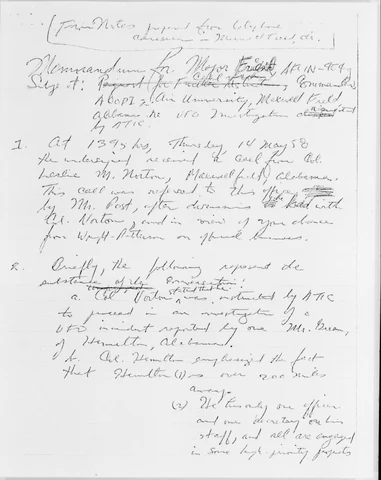 [From Notes prepared from telephone
conversation in Maxwell Field, Ala.
Memorandum for Major
Subject: Commander
Air University, Maxwell Field
Alabama, re UFO Investigation
by ATIC.
1. At 1345 hrs, Thursday, 14 May 58
the undersigned received a call from Col.
Leslie M. Norton, Maxwell Field, Alabama.
This call was referred to this office
by Mr. Post, after discussion with
Col. Norton, and in view of your absence
from Wright-Patterson on official business.
2. Briefly, the following represent the
substance of the conversation:
a. Col. Norton stated that he was instructed by ATIC
to proceed in an investigation of a
UFO incident reported by one Mr.
of Hamilton, Alabama.
b. Col. Hamilton emphasized the fact
that Hamilton (1) was over 200 miles
away.
(2) He has only one officer
and one secretary on his
staff, and all are engaged
in some high priority projects